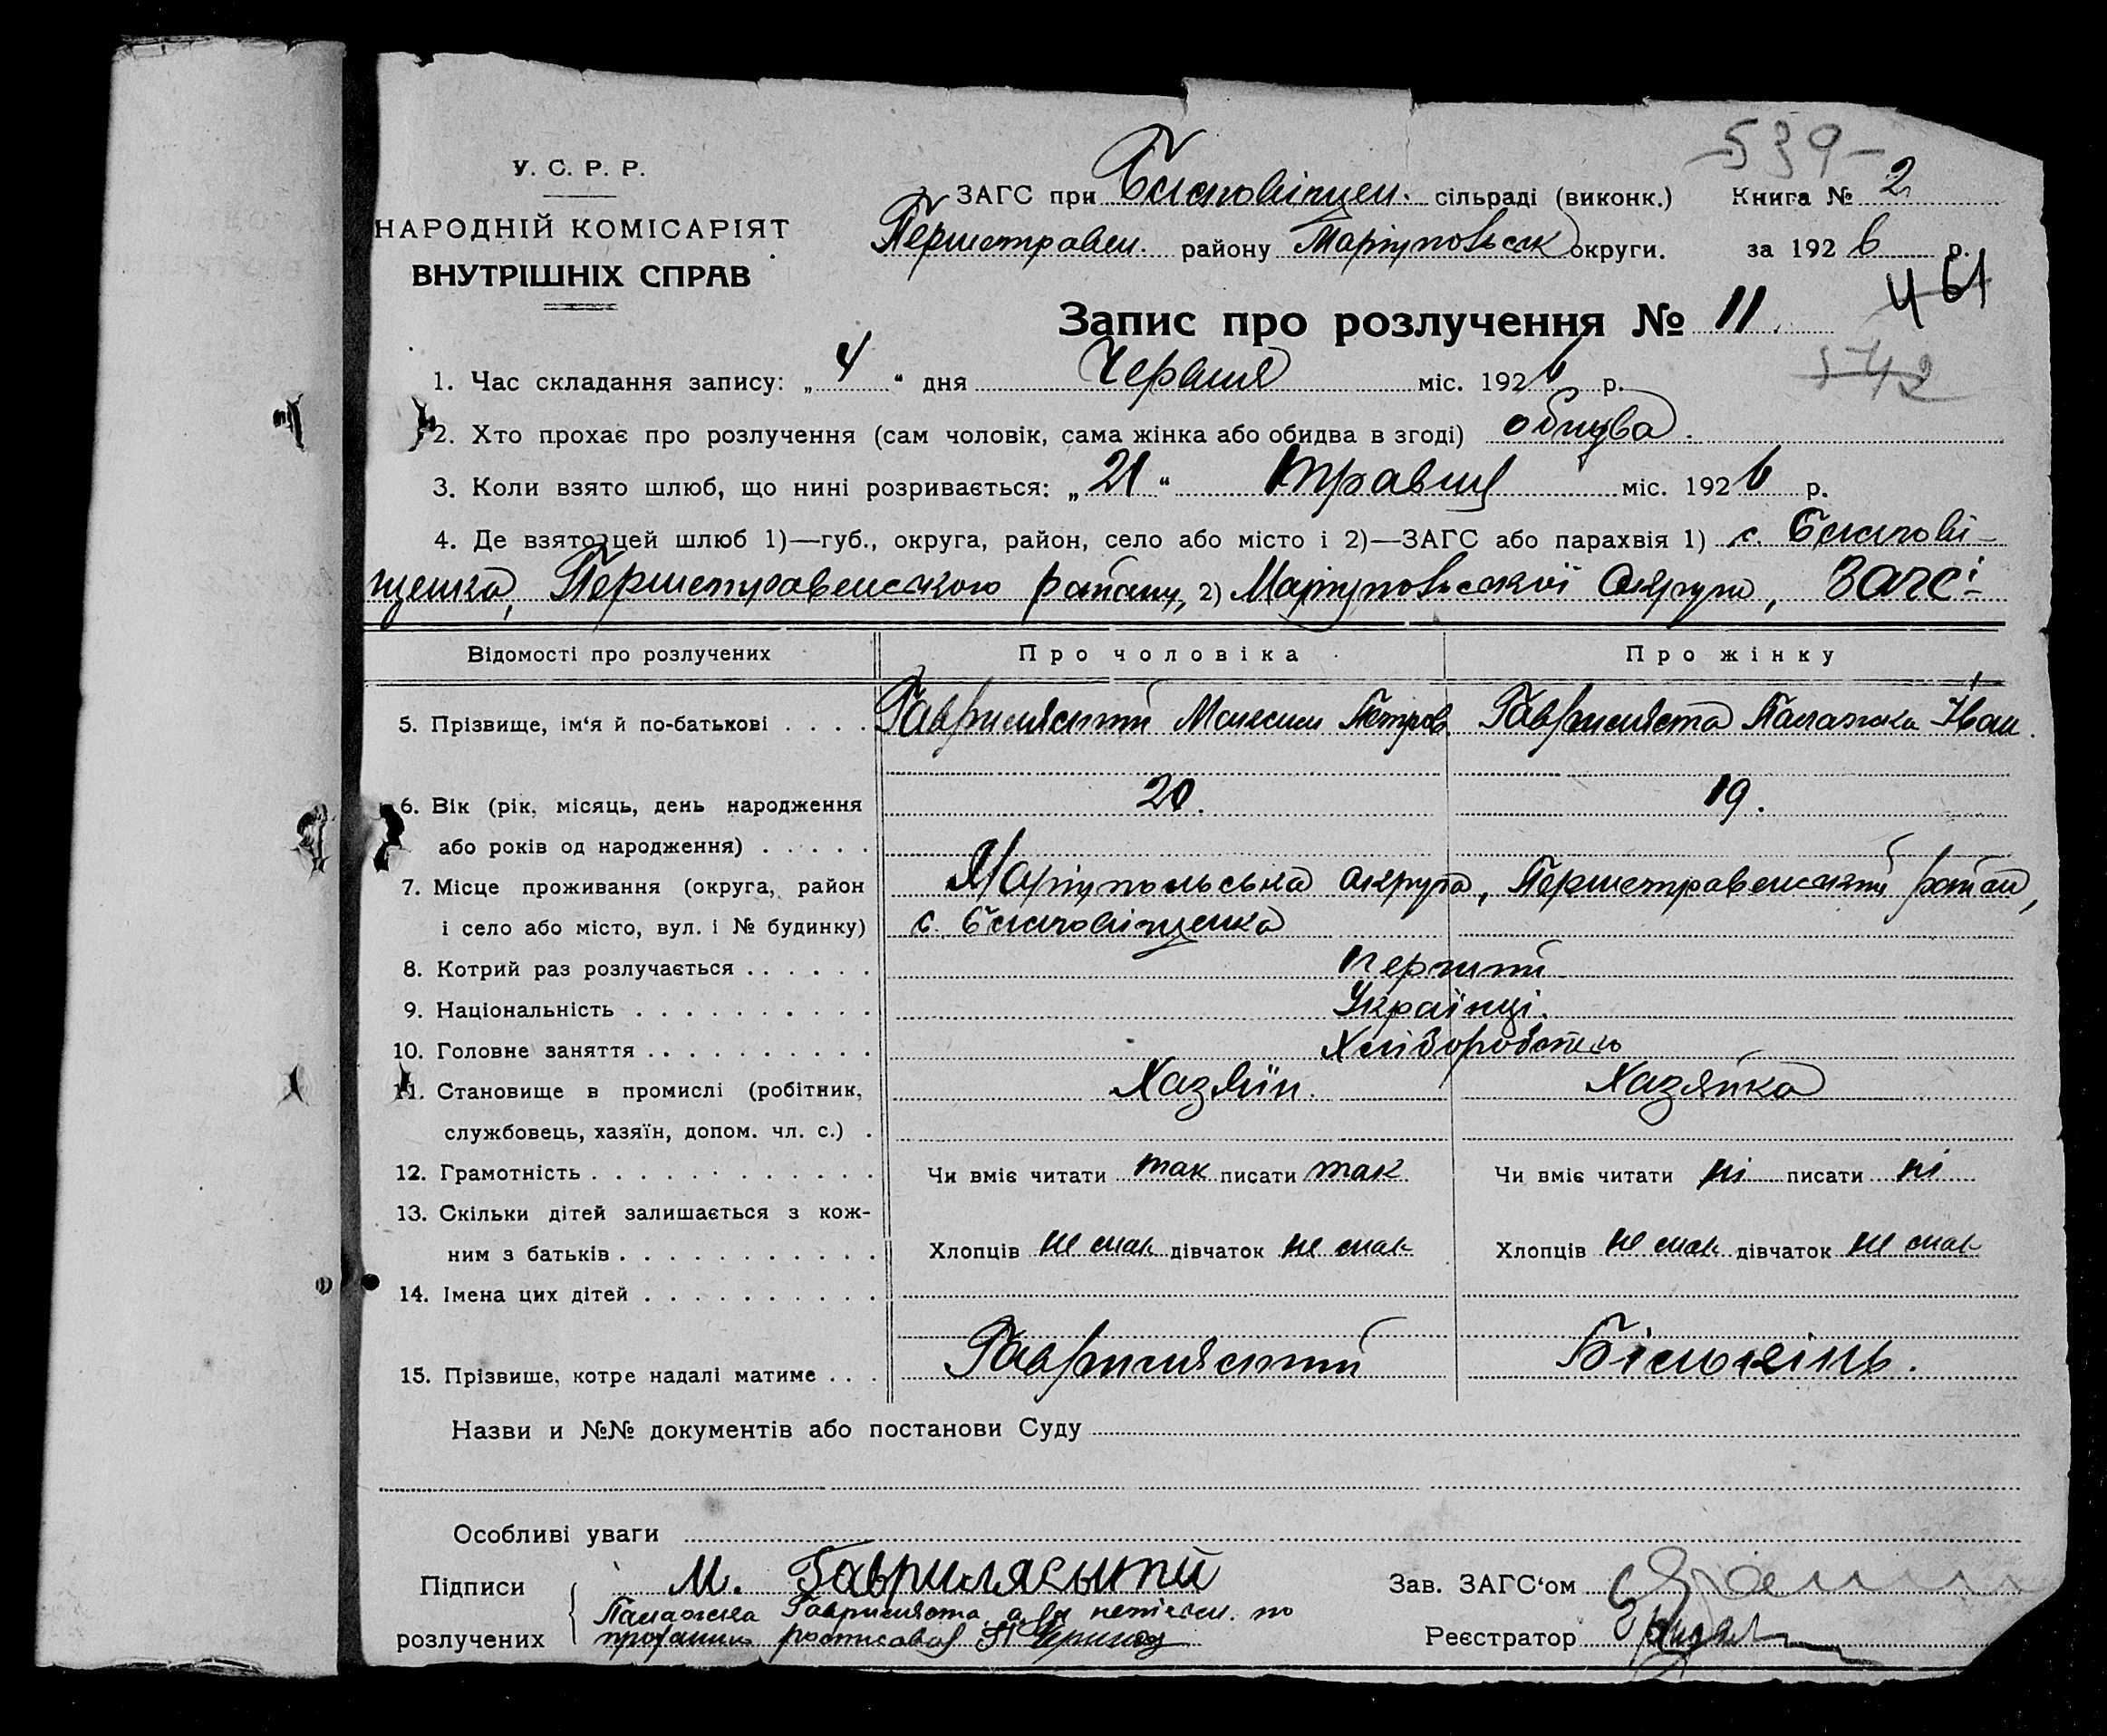 539-
У. С. Р. Р.
НАРОДНІЙ КОМІСАРІЯТ
ВНУТРІШНІХ СПРАВ
ЗАГС при сільраді (виконк.) Книга № 2
Першетравен. району Маріупольськ округи. за 1926 р.
461
Запис про розлучення № 11.
542
1. Час складання запису: „4“ дня Червня міс. 1926 р.
2. Хто прохає про розлучення (сам чоловік, сама жінка або обидва в згоді) обидва.
3. Коли взято шлюб, що нині розривається: „21“ травня міс. 1926 р.
4. Де взято цей шлюб 1)—губ., округа, район, село або місто і 2)—ЗАГС або парахвія 1) с.
Першетравенського району, 2) Маріупольської Округи, ЗАГСі
Відомості про розлучених Про чоловіка Про жінку
5. Прізвище, ім‘я й по-батькові . . . . Гаврилястий Максим Петров. Гавриляста Палажка Іван.
6. Вік (рік, місяць, день народження 20. 19.
або років од народження) . . . . .
7. Місце проживання (округа, район Маріупольська округа, Першетравенський район,
і село або місто, вул. і № будинку) с.
8. Котрий раз розлучається . . . . . . перший
9. Національність . . . . . . . . . . Українці.
10. Головне заняття . . . . . . . . . .
11. Становище в промислі (робітник, Хазяїн. Хазяйка
службовець, хазяїн, допом. чл. с.) .
12. Грамотність . . . . . . . . . . . . Чи вміє читати так писати так Чи вміє читати ні писати ні
13. Скільки дітей залишається з кож-
ним з батьків . . . . . . . . . . . Хлопців не має дівчаток не має Хлопців не має дівчаток не має
14. Імена цих дітей . . . . . . . . . .
15. Прізвище, котре надалі матиме . . . Гаврилястий
Назви и №№ документів або постанови Суду
Особливі уваги
Підписи М. Гаврилястий Зав. ЗАГС‘ом
Палажка Гавриляста, а за по
розлучених росписався Реєстратор